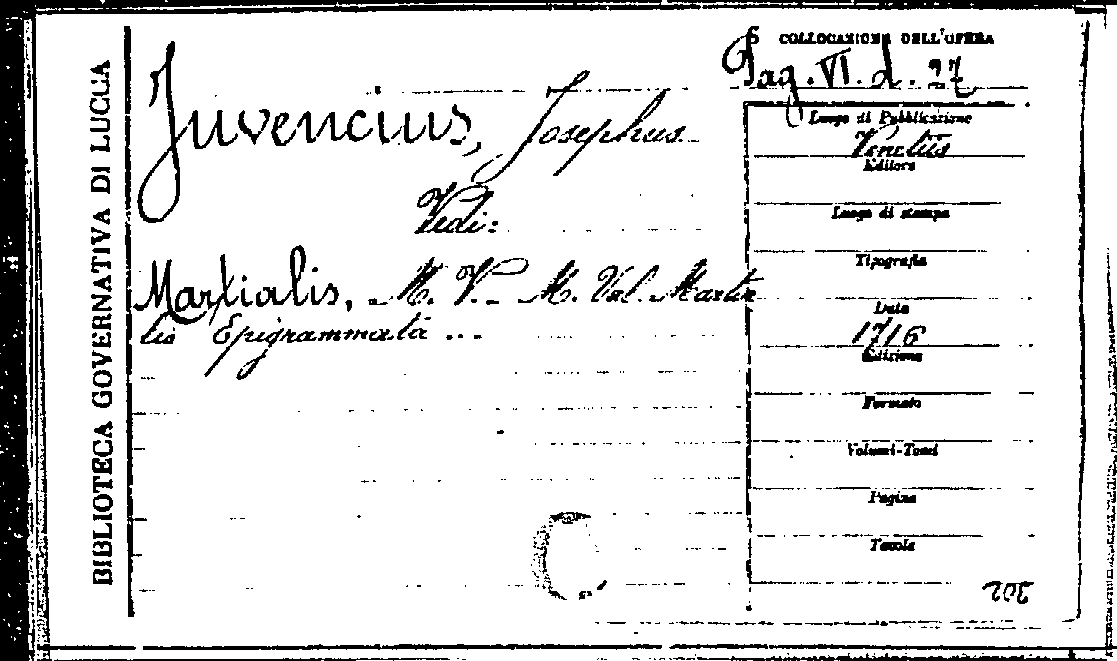 BIBLIOTECA GOVERNATIVA DI LUCCA
COLLOCAZIONE DELL'OPERA
Pag. VI. d. 27
Juvencius, Josephus
Vedi:
Martialis, M. V. - M. Val. Martia
lis Epigrammata ...
Luogo di Pubblicazione
Venetiis
Editore
Luogo di stampa
Tipografia
Data
1716
Edizione
Formato
Volumi-Tomi
Pagine
Tavole